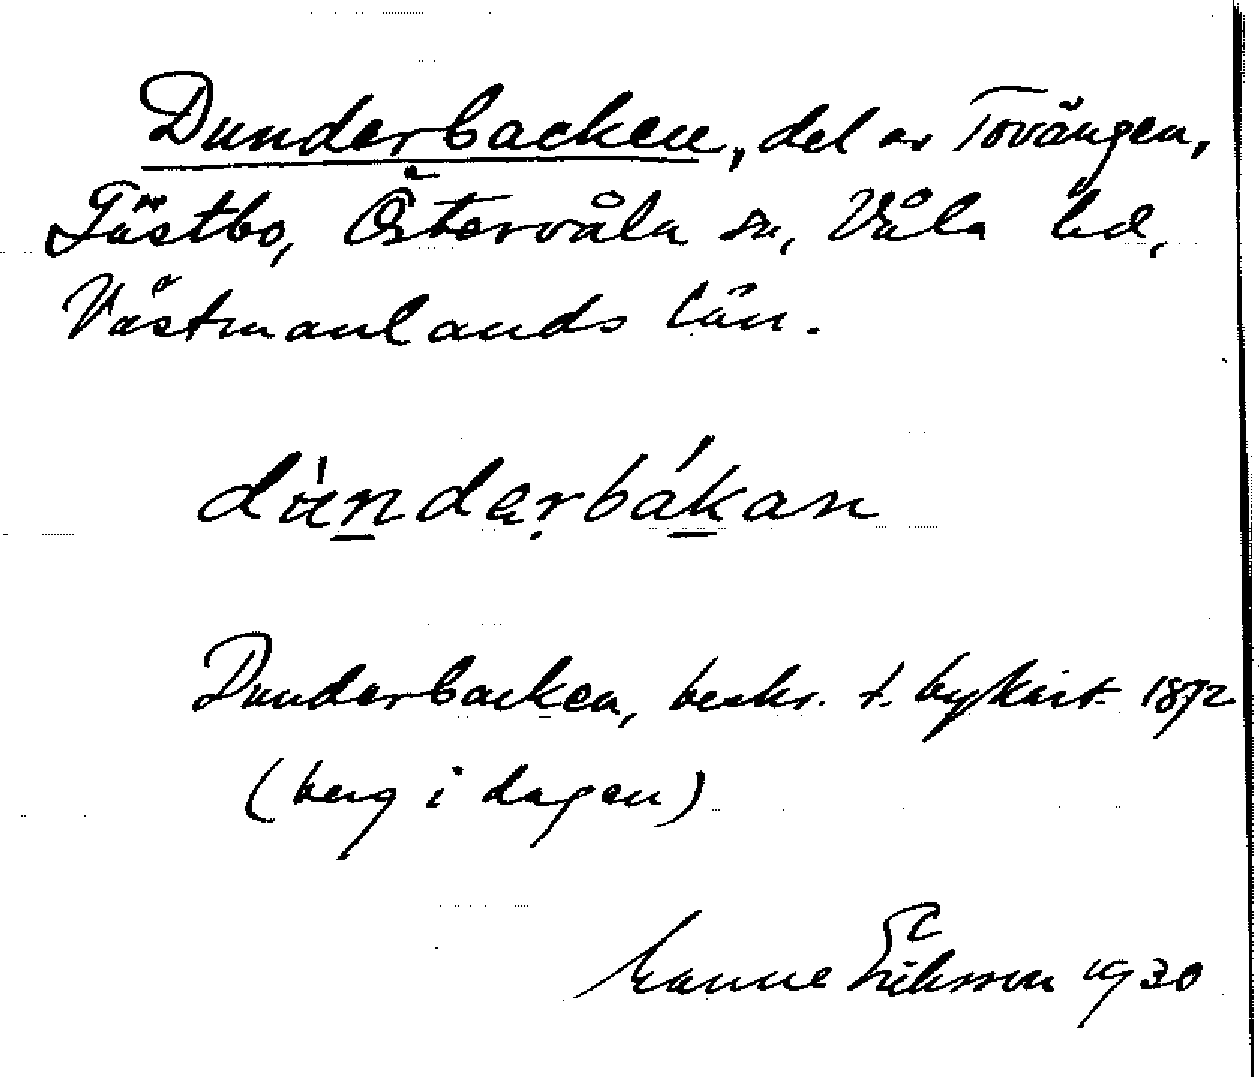 Dunderbacken, del av Tovängen,
Tästbo, Östervåla sn, Våla hd,
Västmanlands län.
dùndərbákan
Dunderbacken, beskr. t. bykart 1872
(berg i dagen)
Manne Eriksson 1930